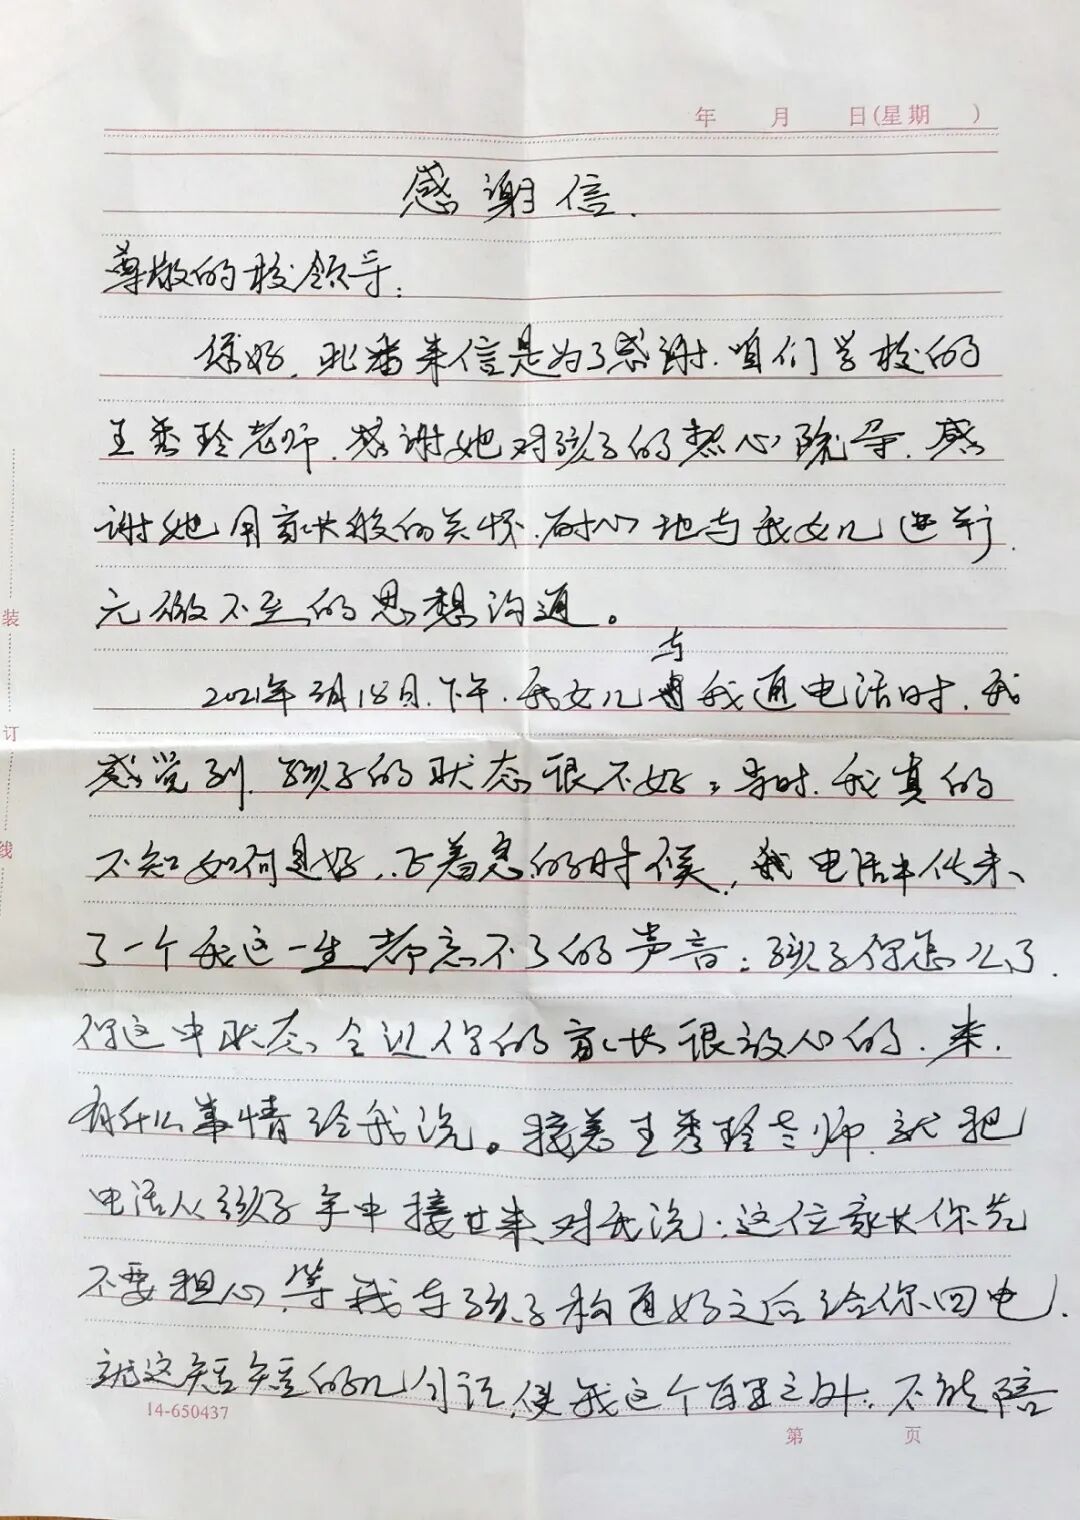 年 月 日(星期 )
感谢信.
尊敬的校领导:
您好,此番来信是为了感谢.咱们学校的
王秀玲老师.感谢她对孩子的热心疏导.感
谢她用家长般的关怀.耐心地与我女儿进行.
无微不至的思想沟通。
与
2021年3月18日.下午.我女儿 我通电话时.我
感觉到.孩子的状态很不好;当时.我真的
不知如何是好,正着急的时候,我电话中传来
了一个我这一生都忘不了的声音:孩子你怎么了.
你这中状态.会让你的家长很放心的.来.
有什么事情给我说。接着王秀玲老师.就把
电话从孩子手中接过来对我说:这位家长你先
不要担心,等我与孩子沟通好之后给你回电.
就这短短的几句话,使我这个百里之外.不能陪
14-650437
第 页
装
订
线